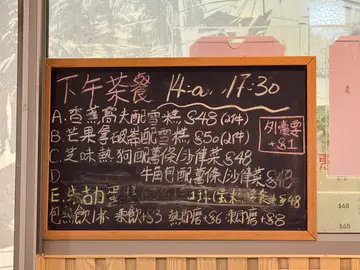 下午茶餐 14:00 - 17:30
A.香蕉窩夫配雪糕 $48(2件)
B.芒果拿破崙配雪糕 $50(2件)
C.芝味熱狗配薯條/沙律菜 $48
D. 牛角包配薯條/沙律菜 $48
E. 蛋糕 $48
包熱飲1杯 凍飲+$3 +$6 +$8
外賣要
+$1
$68
$68